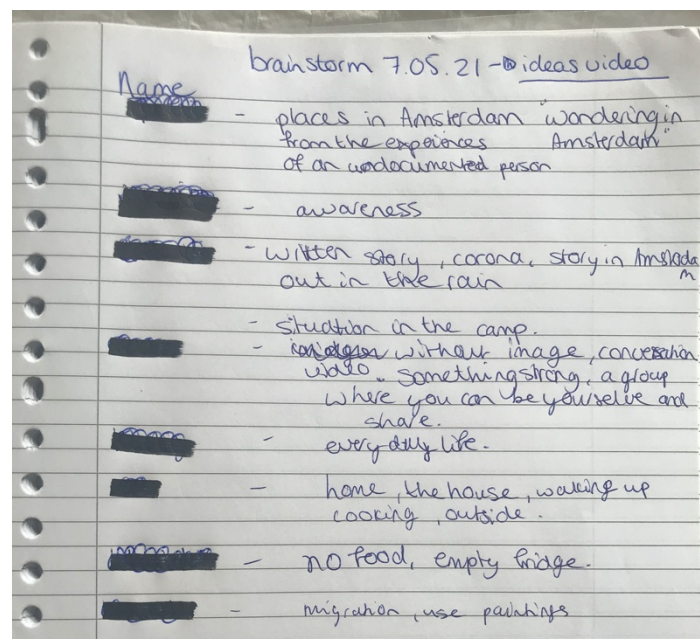 brainstorm 7.05.21 → ideas video
Name
- places in Amsterdam "wondering in
from the expeiences Amsterdam"
of an undocumented person
- awareness
- written story, corona, story in Amsterdam
out in the rain
- situation in the camp.
- without image, conversation
video. something strong, a group
where you can be yourselve and
share.
- every daily life.
- home, the house, waking up
cooking, outside.
- no food, empty fridge.
- migration, use paintings